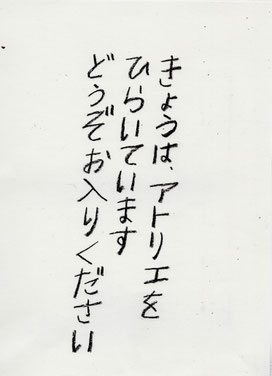 きょうは、アトリエを
ひらいています
どうぞお入りください